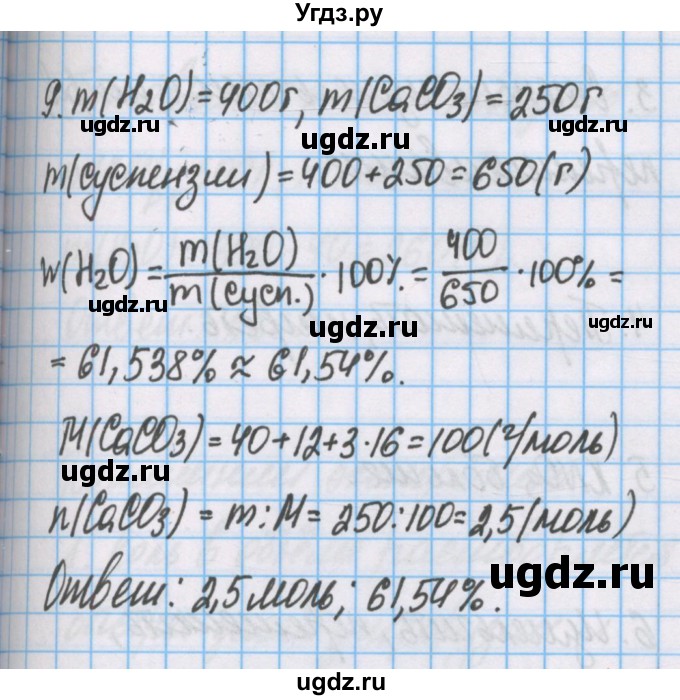 Угдз.ру
9. m(H2O)=400г, m(CaCO3)=250г
ugdz.ru ugdz.ru ugdz.ru
m(суспензии)=400+250=650(г)
w(H2O)= m(H2O)/m(сусп.) · 100% = 400/650 · 100% =
ugdz.ru ugdz.ru ugdz.ru
= 61,538% ≈ 61,54%.
M(CaCO3)=40+12+3·16=100(г/моль)
ugdz.ru ugdz.ru
n(CaCO3) = m:M= 250:100=2,5(моль)
ugdz.ru ugdz.ru
Ответ: 2,5 моль; 61,54%.
ugdz.ru ugdz.ru
ugdz.ru